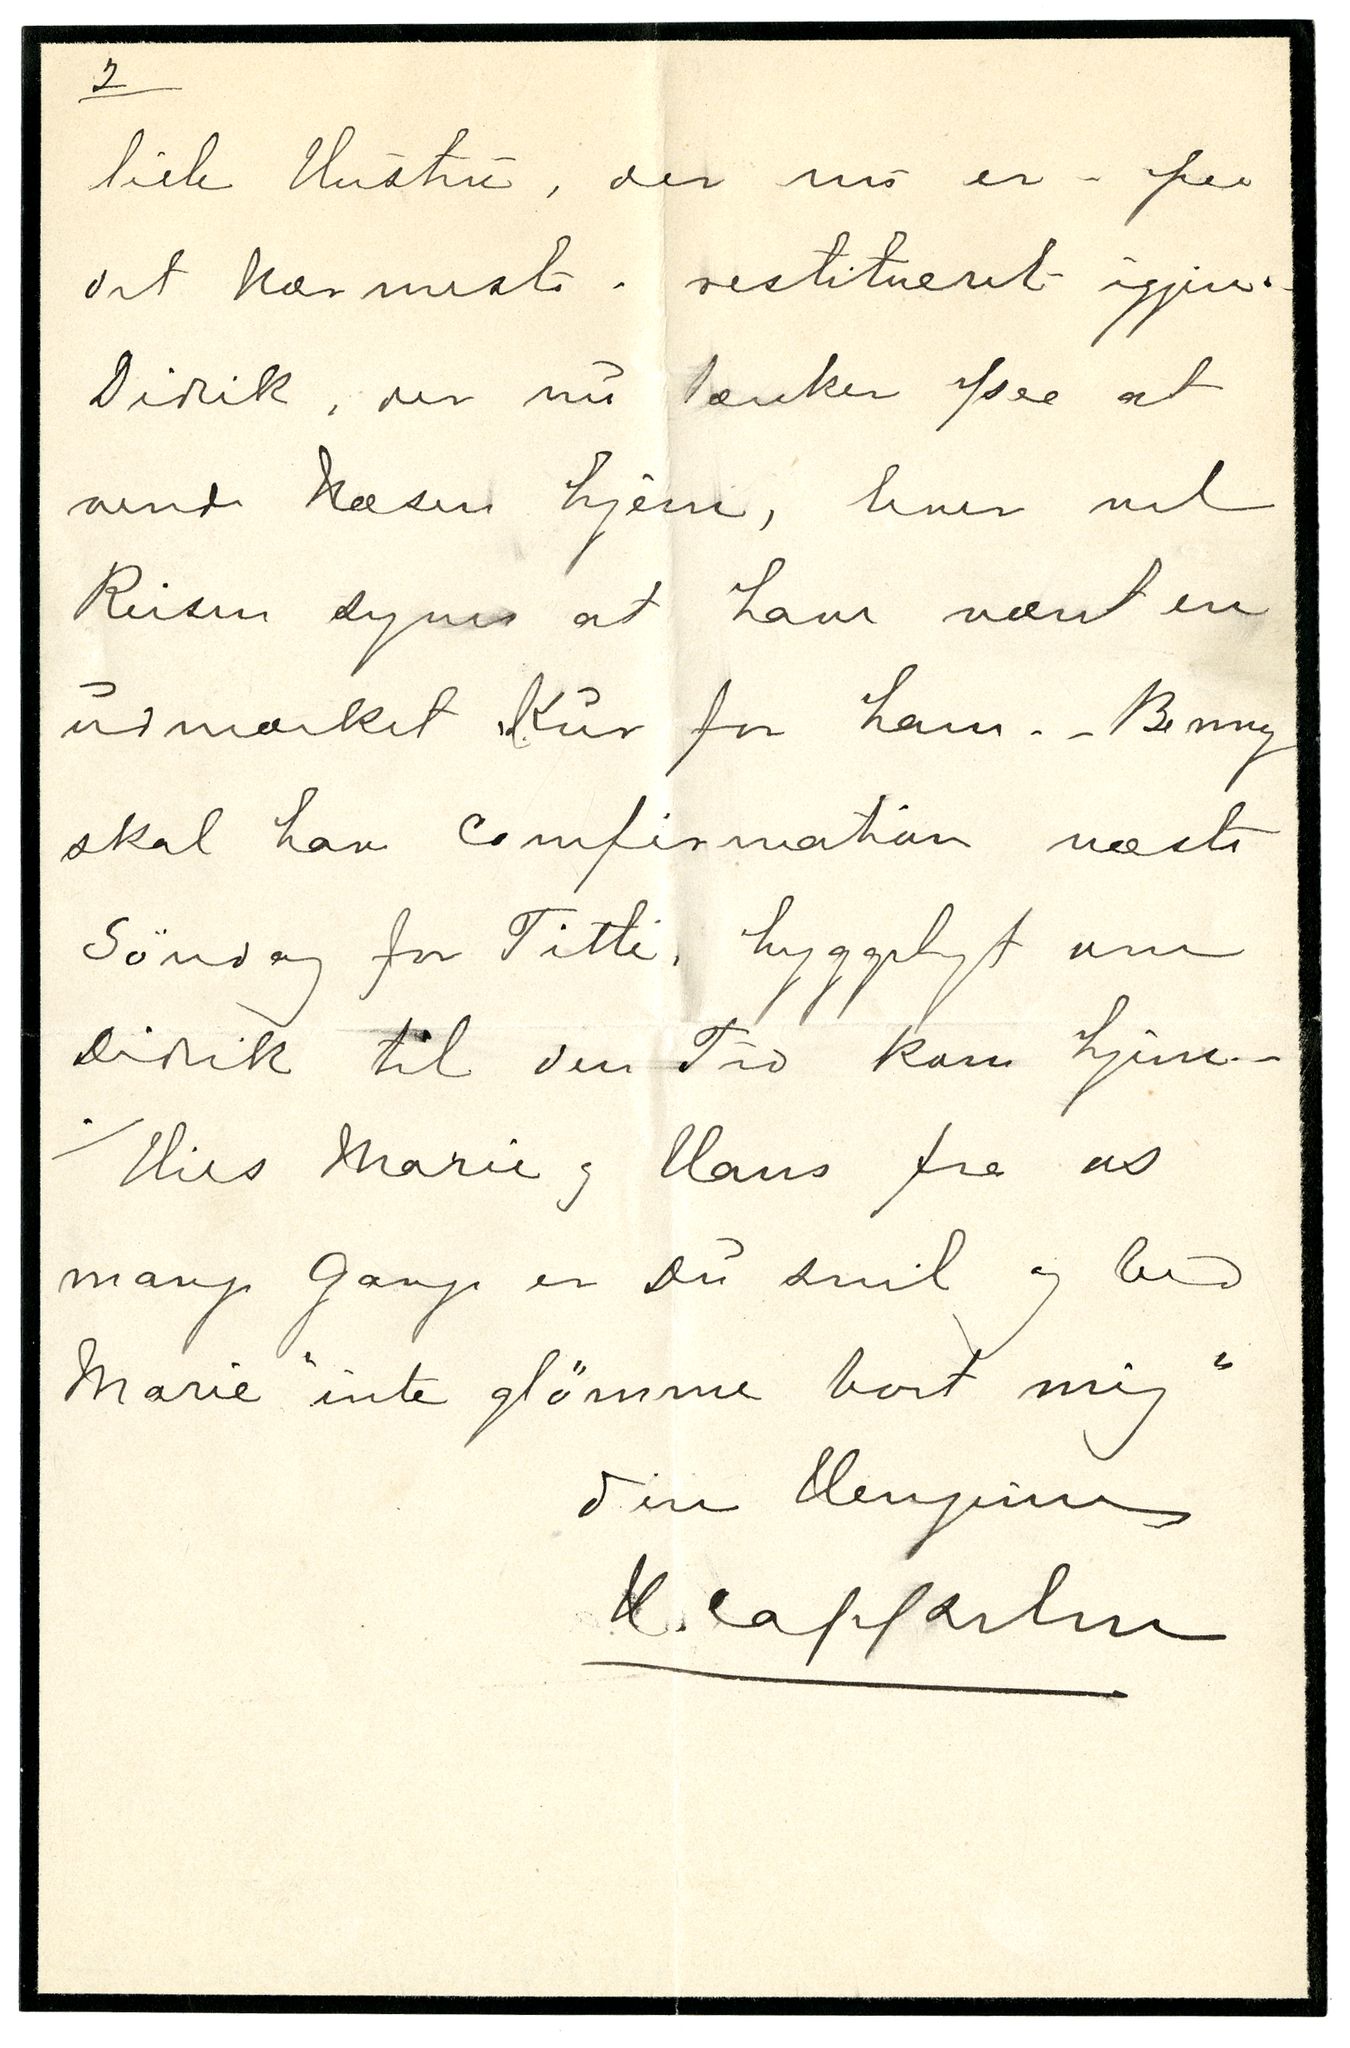 2
lille Hustrü, der nü er - paa
det nærmeste - restitueret igjen. -
Didrik, der nü tænker paa at
vende Næsen hjem, lever vel
Reisen synes at have været en
üdmærket Kür for ham. - Benny
skal have Comfirmation næste
Söndag for Titti, hyggeligt om
Didrik til den Tid kom hjem. -
Hils Marie og Hans fra os
mange Gange er Dü snil og bed
Marie "inte glömme bort mig"
din Hengivne
H. Cappelen